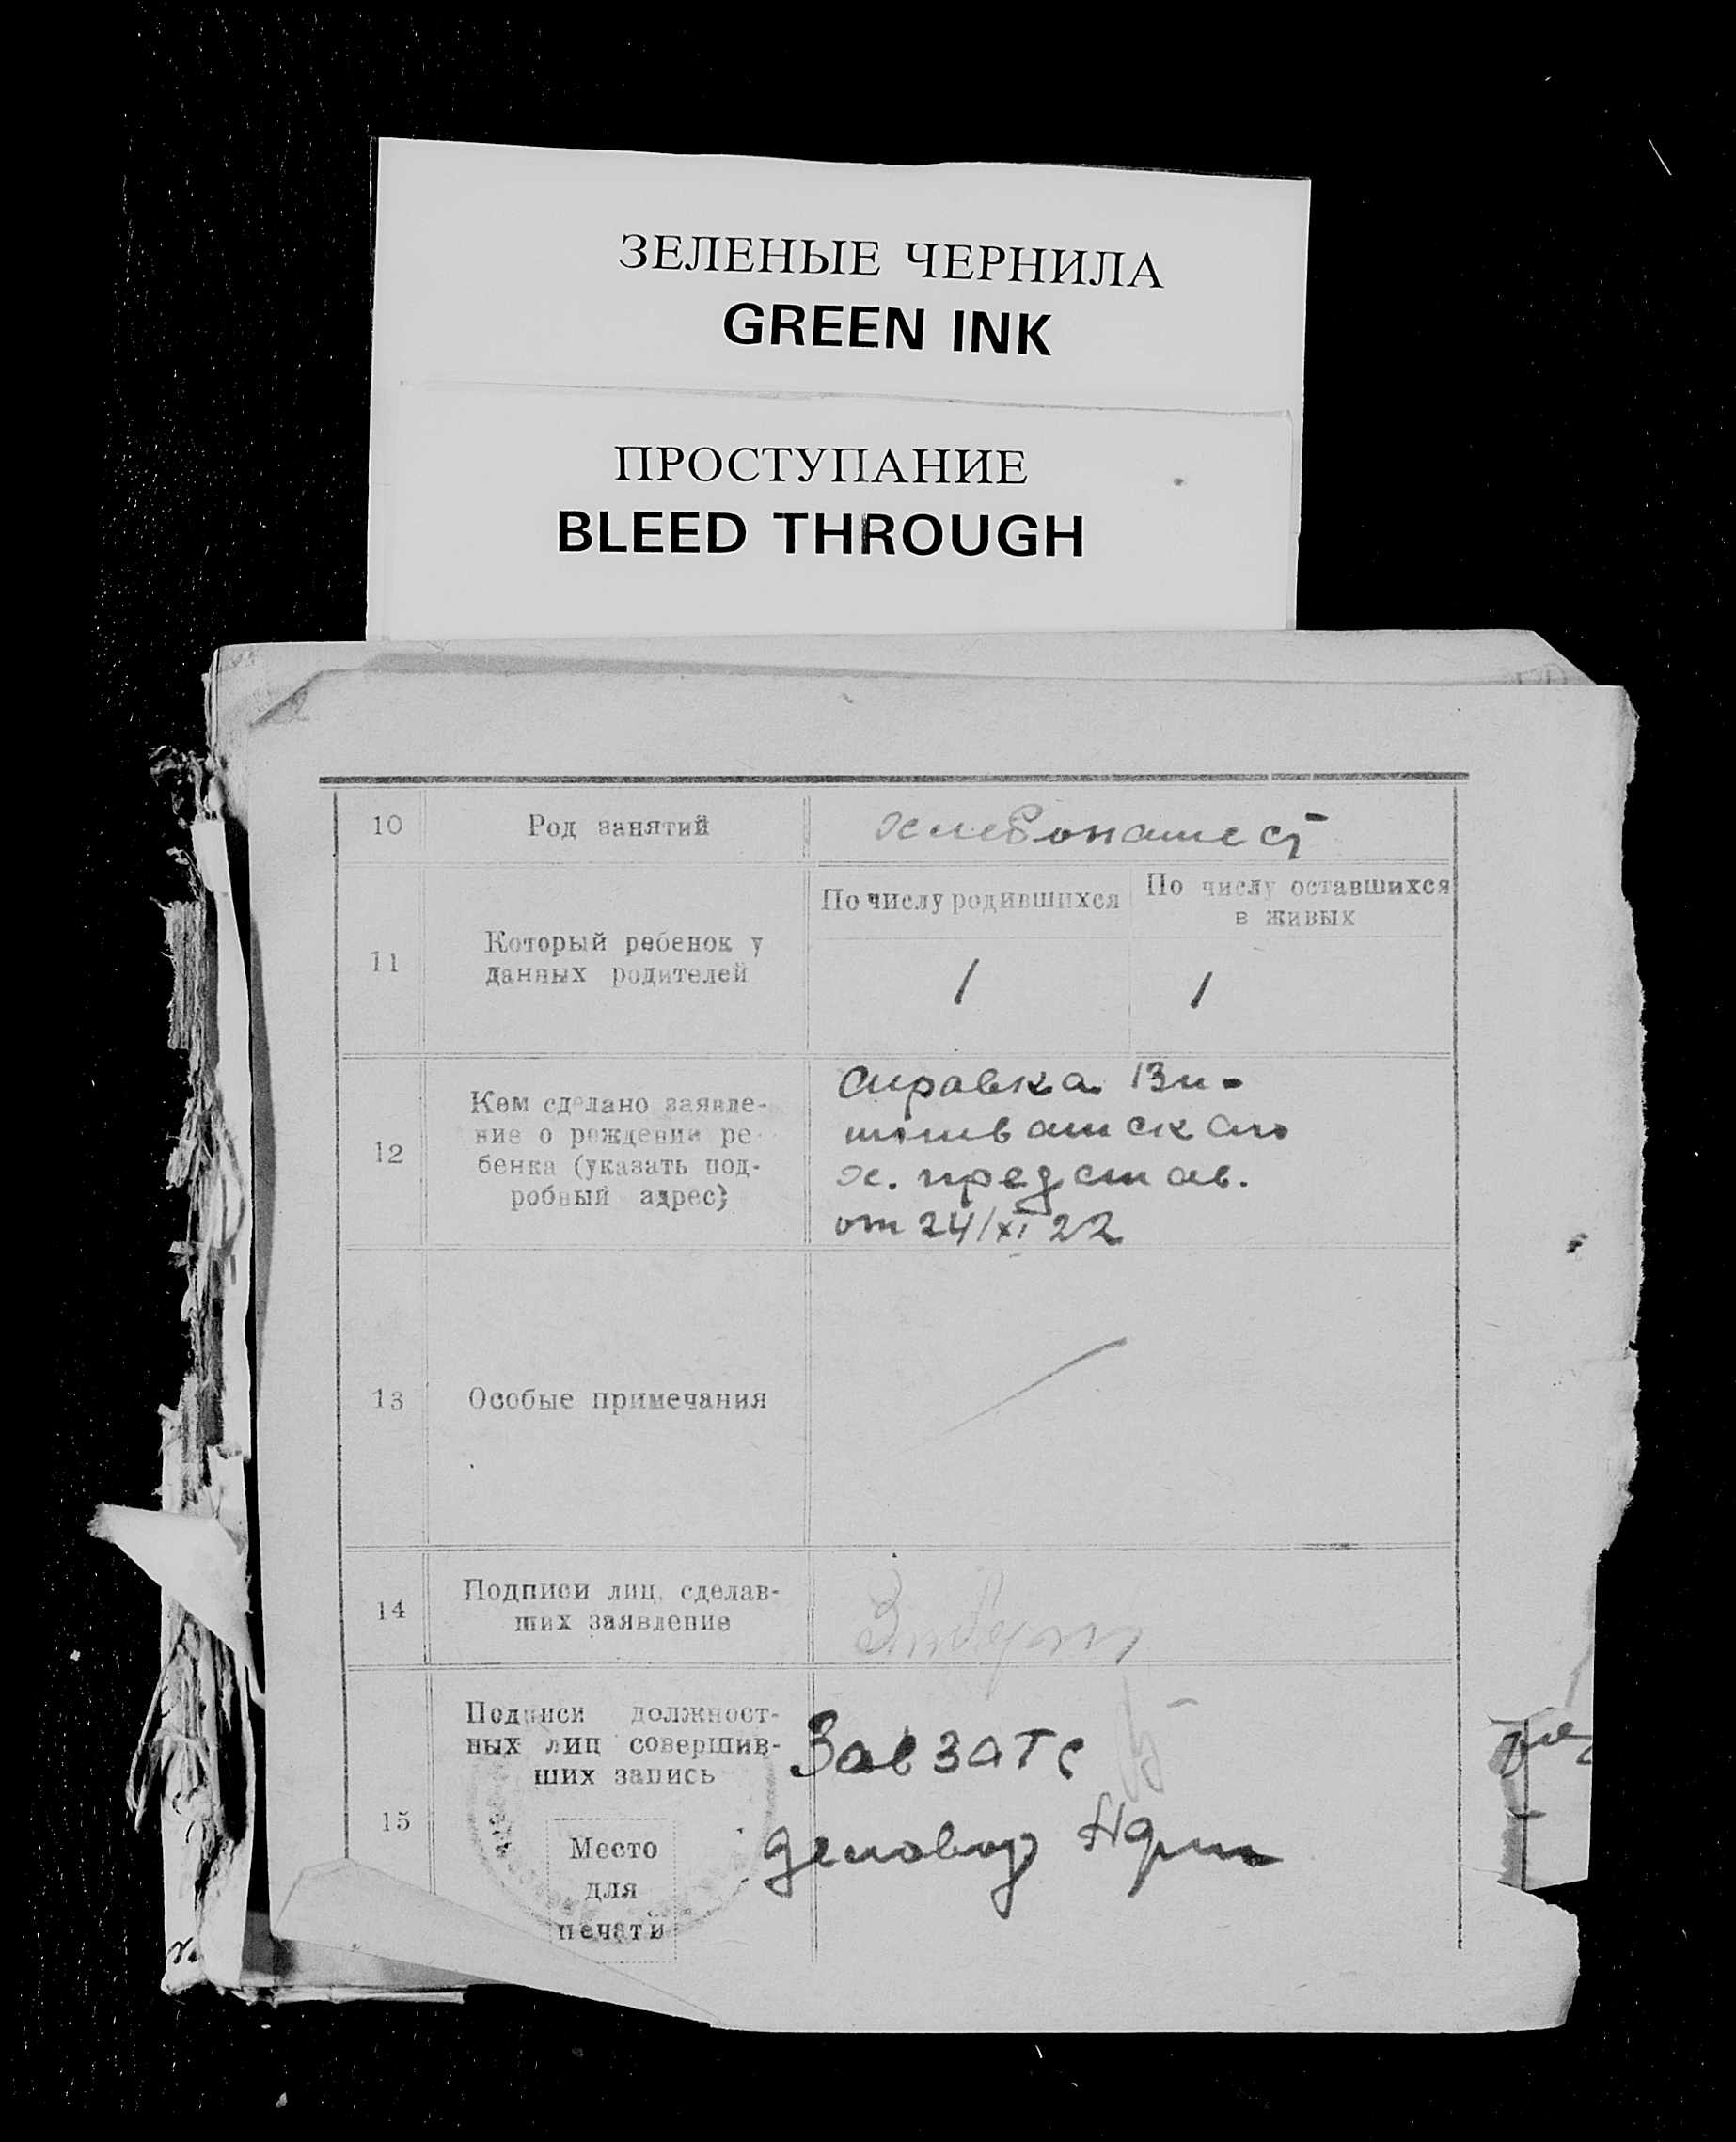 ЗЕЛЕНЫЕ ЧЕРНИЛА
GREEN INK
ПРОСТУПАНИЕ
BLEED THROUGH
10 Род занятий хлебопашест
11 Который ребенок у
данных родителей
По числу родившихся
По числу оставшихся
в живых
1 1
12 Кем сделано заявле-
ние о рождении ре-
бенка (указать под-
робный адрес)
Справка
х. представ.
от 24/XI 22
13 Особые примечания
14 Подписи лиц, сделав-
ших заявление
15 Подписи должност-
ных лиц совершив-
ших запись
Место
для
печати
Завзагс
деловод